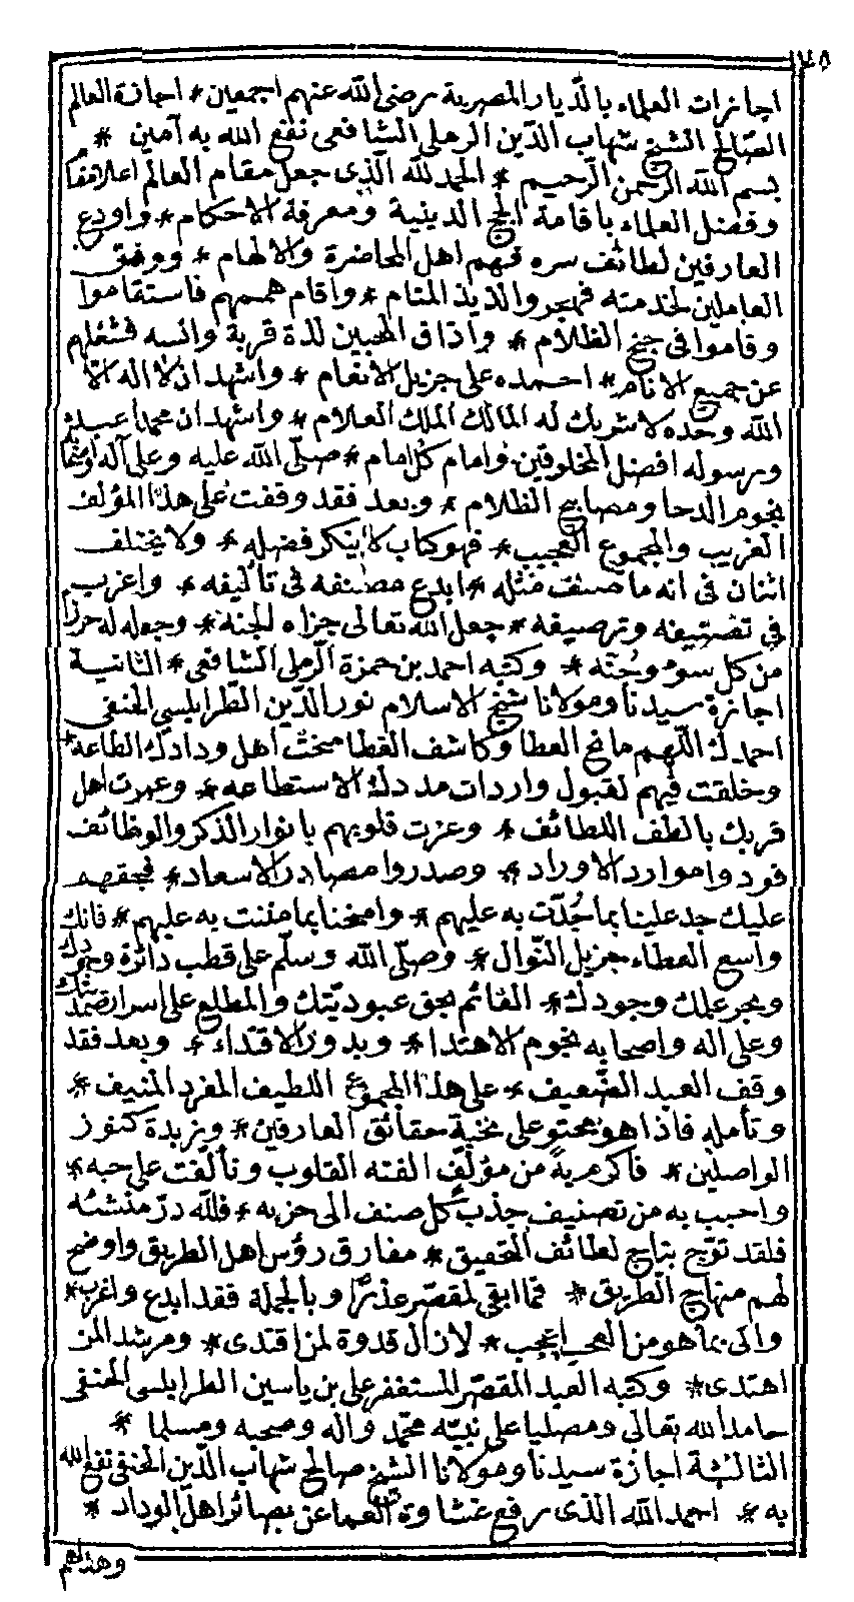 ١٧٥
اجازات العلماء بالديار المصرية رضى الله عنهم اجمعين * اجازة العالم
الصالح الشيخ شهاب الدين الرملى الشافعى نفع الله به آمين *
بسم الله الرحمن الرحيم * الحمد لله الذى جعل مقام العالم اعلا مقام
وفضل العلماء باقامة الحجج الدينية ومعرفة الاحكام * واودع
العارفين لطائف سره فهم اهل المحاضرة والالهام * ووفق
العاملين لخدمته فهجروا لذيذ المنام * واقام هممهم فاستقاموا
وقاموا فى جنح الظلام * واذاق المحبين لذة قربة وانسه فشغلهم
عن جميع الانام * احمده على جزيل الانعام * واشهد ان لا اله الا
الله وحده لا شريك له المالك الملك العلام * واشهد ان محمدا عبده
ورسوله افضل المخلوقين وامام كل امام * صلى الله عليه وعلى آله
نجوم الدجا ومصابيح الظلام * وبعد فقد وقفت على هذا المؤلف
الغريب والمجموع العجيب * فهو كتاب لا ينكر فضله * ولا يختلف
اثنان فى انه ما صنف مثله * ابدع مصنفه فى تأليفه * واغرب
فى تصنيفه وترصيفه * جعل الله تعالى جزاه الجنة * وجعله له حرزا
من كل سوء وجنه * وكتبه احمد بن حمزة الرملى الشافعى * الثانية
اجازة سيدنا ومولانا شيخ الاسلام نور الدين الطرابلسى الحنفى
احمدك اللهم مانح العطا وكاشف الغطا منحت اهل ودادك الطاعه *
وخلقت فيهم لقبول واردات مددك الاستطاعه * وعمرت اهل
قربك بالطف اللطائف * وعزت قلوبهم بانوار الذكر والوظائف
فوردوا موارد الاوراد * وصدروا مصادر الاسعاد * فبحقهم
عليك جد علينا بما جدت به عليهم * وامنحنا بما مننت به عليهم * فانك
واسع العطاء جزيل النوال * وصلى الله وسلم على قطب دائرة وجودك
وبحر عملك وجودك * القائم بحق عبوديتك والمطلع على اسرار صمديتك
وعلى اله واصحابه نجوم الاهتدا * وبدور الاقتداء * وبعد فقد
وقف العبد الضعيف * على هذا المجموع اللطيف المفرد المنيف *
وتأمله فاذا هو محتو على نخبة حقائق العارفين * وزبدة كنوز
الواصلين * فاكرم به من مؤلف الفته القلوب وتألفت على حبه *
واحبب به من تصنيف جذب كل صنف الى حزبه * فلله در منشئه
فلقد توج بتاج لطائف التحقيق * مفارق رؤس اهل الطريق واوضح
لهم منهاج الطريق * فما ابقى لمقصر عذرا وبالجملة فقد ابدع واغرب *
واتى بما هو من العجب اعجب * لا زال قدوة لمن اقتدى * ومرشدا لمن
اهتدى * وكتبه العبد المقصر المستغفر على بن ياسين الطرابلسى الحنفى
حامدا لله تعالى ومصليا على نبيه محمد واله وصحبه ومسلما *
الثالثة اجازة سيدنا ومولانا الشيخ صالح شهاب الدين الحنفى نفع الله
به * احمد الله الذى رفع غشاوة العما عن بصائر اهل الوداد *